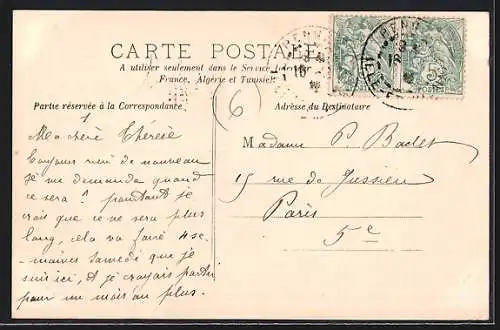 CARTE POSTALE
A utiliser seulement dans le Service intérieur
France, Algérie et Tunisie
Partie réservée à la Correspondance
Adresse du Destinataire
6
Ma chère Thérèse
Toujours rien de nouveau
je me demande quand
ce sera ? pourtant je
crois que ce ne sera plus
long, cela va faire 4 se-
maines samedi que je
suis ici, et je croyais partir
pour un mois au plus.
Madame P. Badet
15 rue de Jussieu
Paris
5e
5c
POSTES